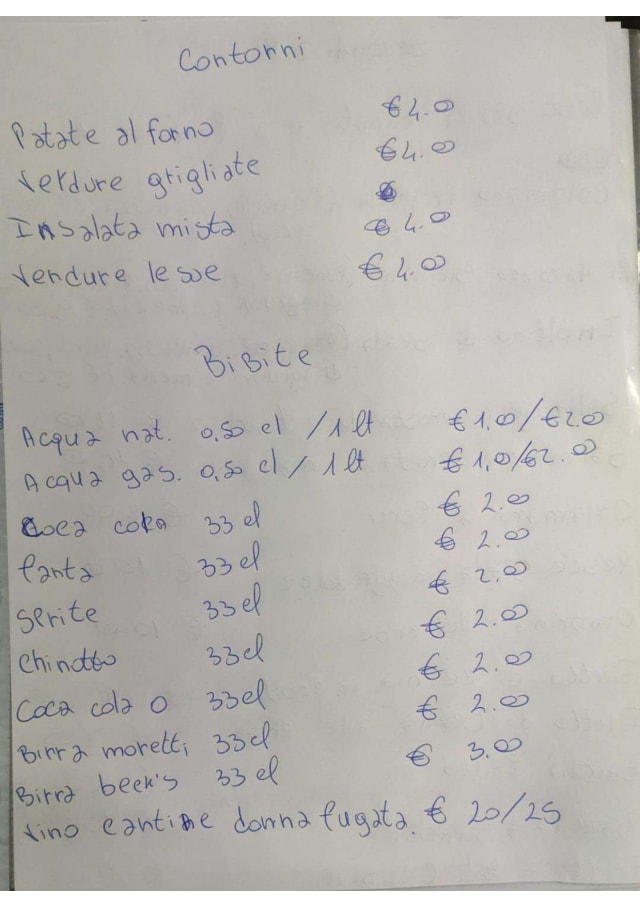 Contorni
Patate al forno €4.00
Verdure grigliate €4.00
Insalata mista €4.00
Verdure lesse €4.00
Bibite
Acqua nat. 0,50 cl /1 lt €1,00/€2.00
Acqua gas. 0,50 cl / 1 lt €1,00/€2.00
Coca cola 33 cl € 2.00
Fanta 33 cl € 2.00
Sprite 33 cl € 2.00
Chinotto 33cl € 2.00
Coca cola 0 33cl € 2.00
Birra moretti 33cl € 2.00
Birra beck's 33 cl € 3.00
Vino cantine donna fugata. € 20/25